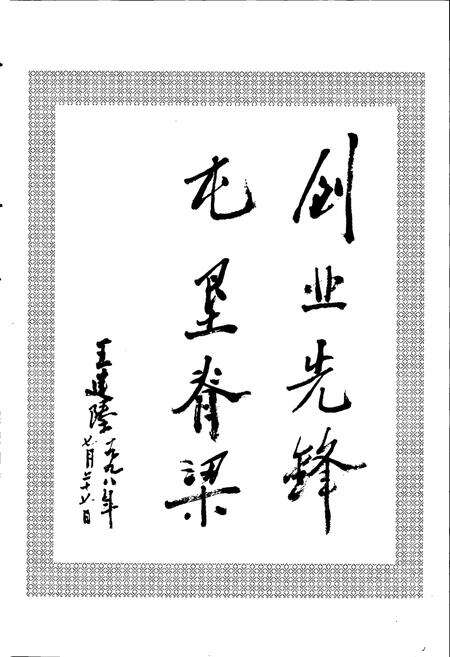 创业先锋
屯垦脊梁
王建陆 一九九八年
七月二十七日